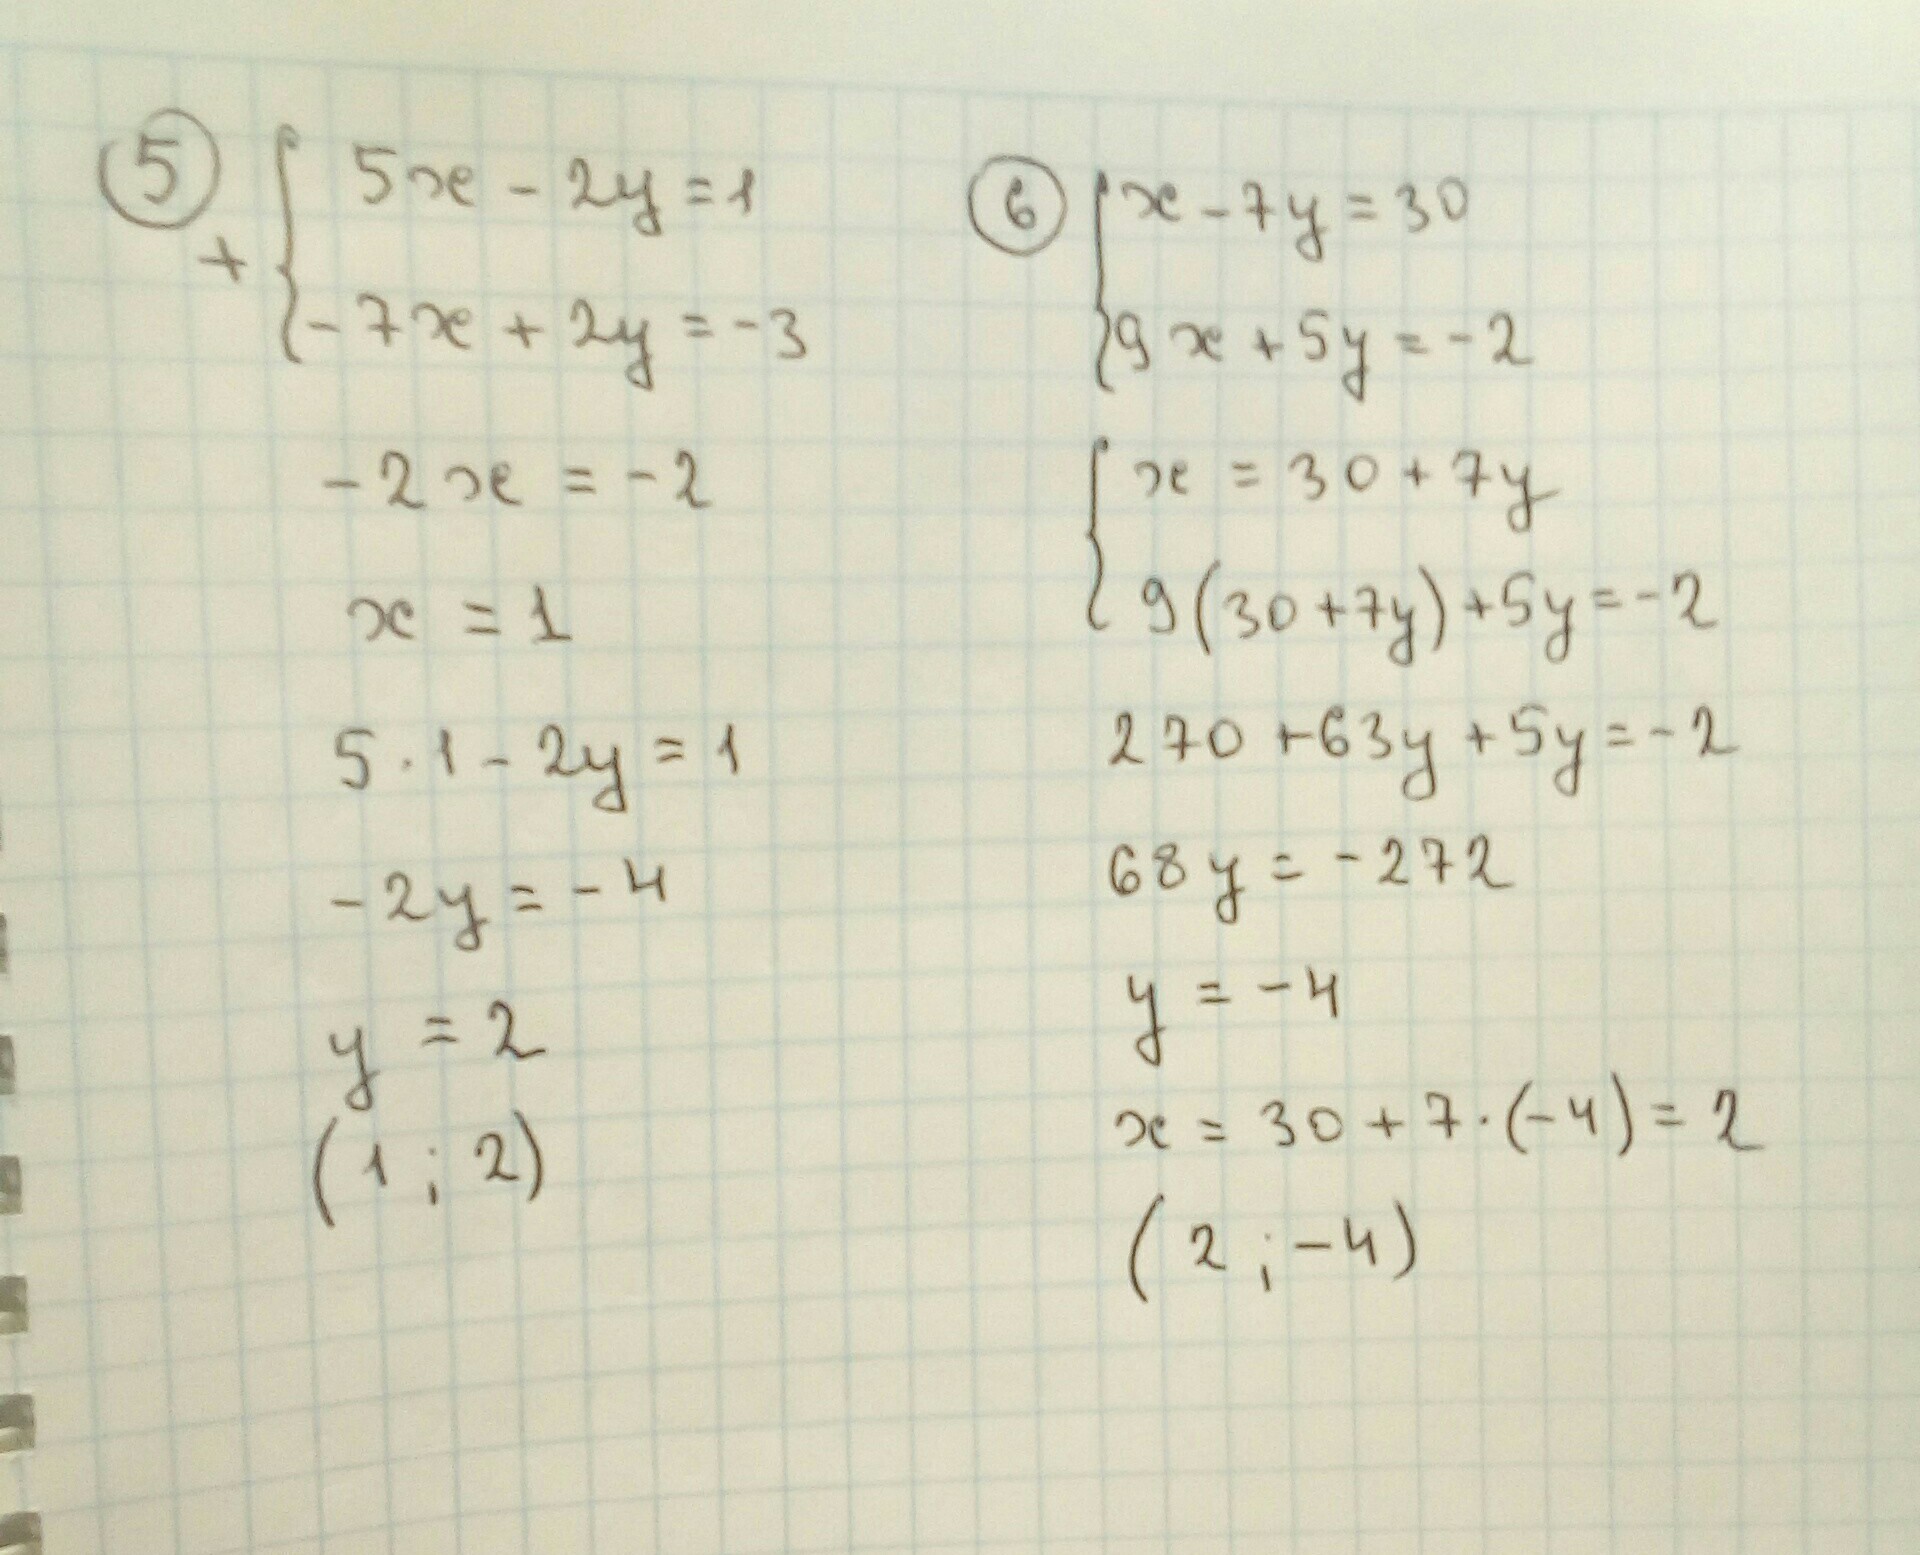 ⑤ + { 5x - 2y = 1
-7x + 2y = -3
-2x = -2
x = 1
5·1 - 2y = 1
-2y = -4
y = 2
(1; 2)
⑥ { x - 7y = 30
9x + 5y = -2
{ x = 30 + 7y
9(30 + 7y) + 5y = -2
270 + 63y + 5y = -2
68y = -272
y = -4
x = 30 + 7·(-4) = 2
(2; -4)